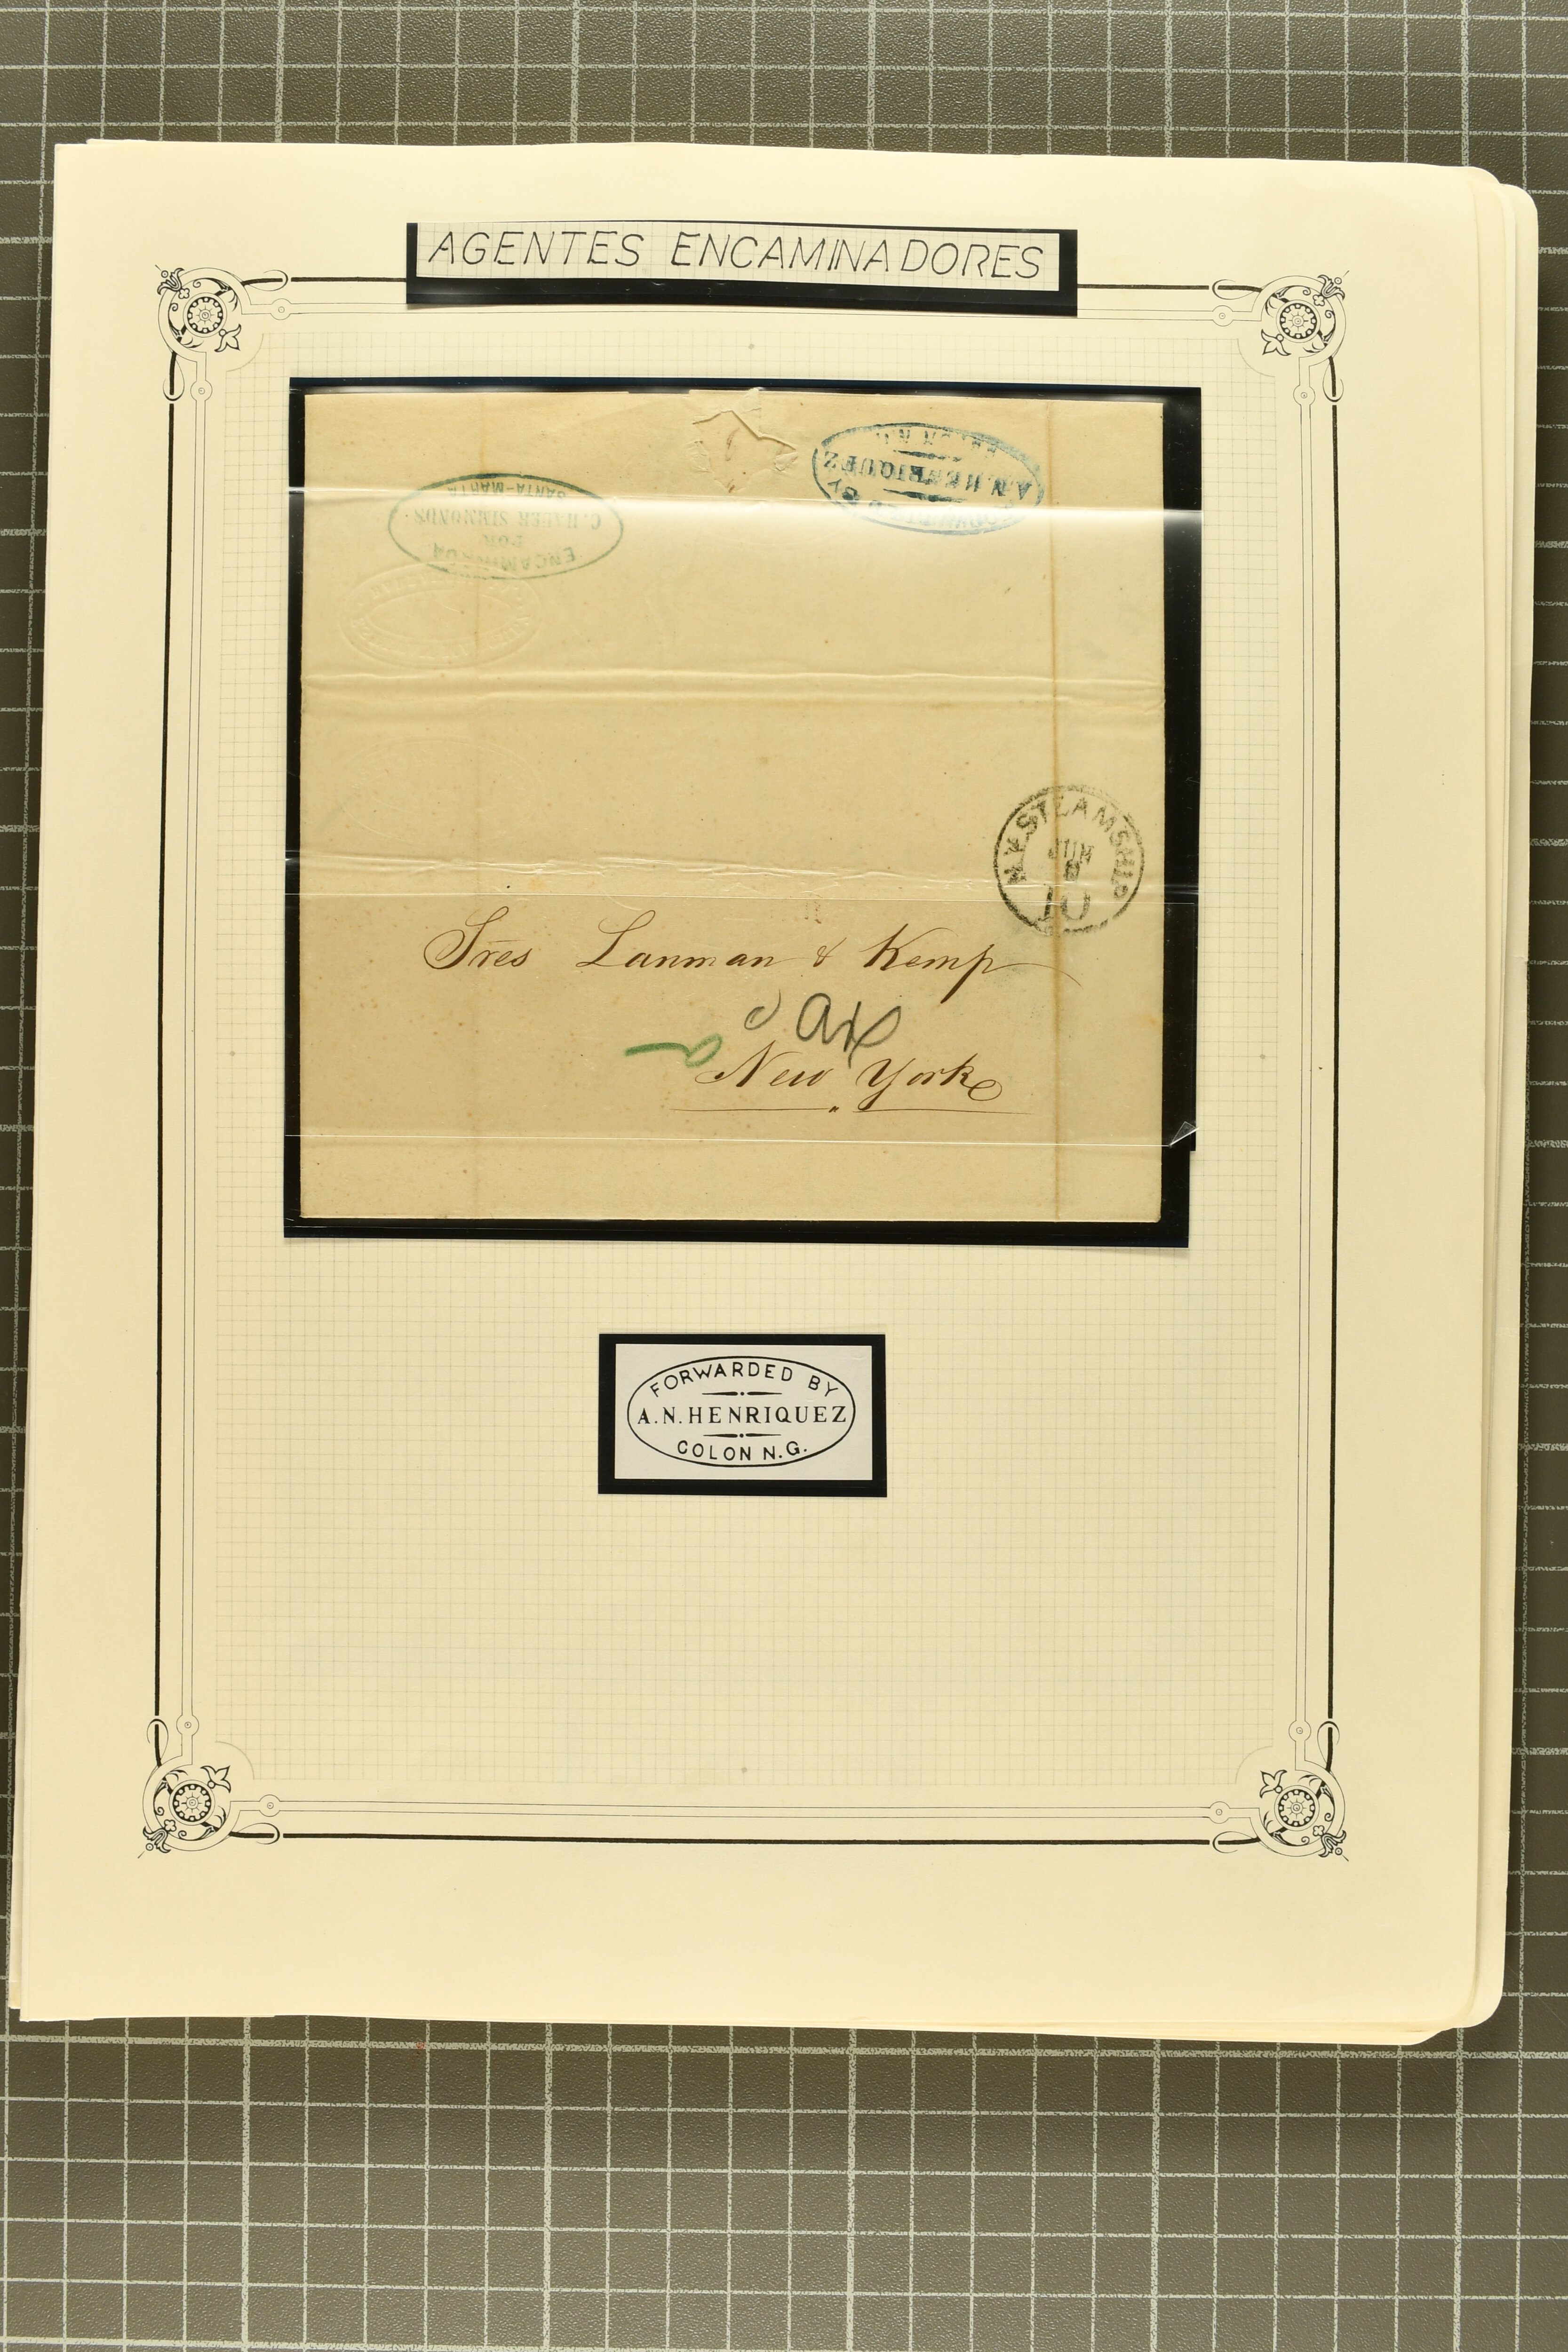 AGENTES ENCAMINADORES
A.N.HENRIQUEZ
ENCAMINADA
POR
C. HAUER SIMMONDS
SANTA-MARTA
N.Y. STEAMSHIP
JUN
10
Sres Lanman & Kemp
New York
FORWARDED BY
A.N.HENRIQUEZ
COLON N.G.